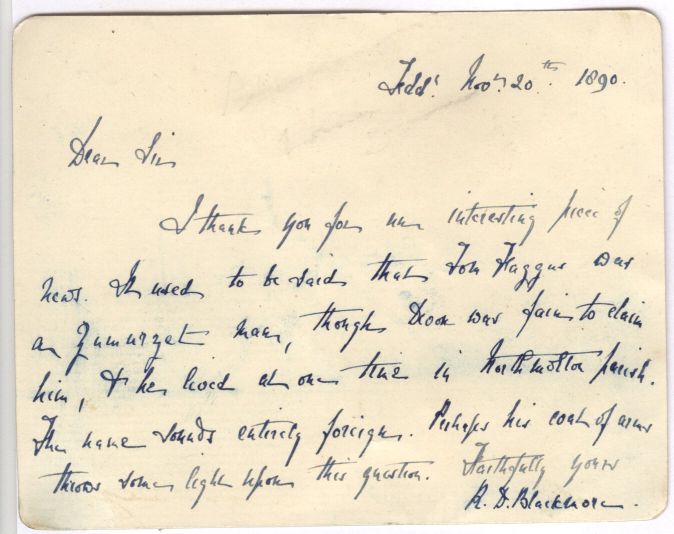 Tedd. Nov. 20th. 1890.
Dear Sir
I thank you for an interesting piece of
news. It used to be said that Tom Faggus was
a Zumurzet man, though Devon was fain to claim
him, & he lived at one time in Northmolton parish.
The name sounds entirely foreign. Perhaps his coat of arms
throws some light upon this question. Faithfully yours
R. D. Blackmore.